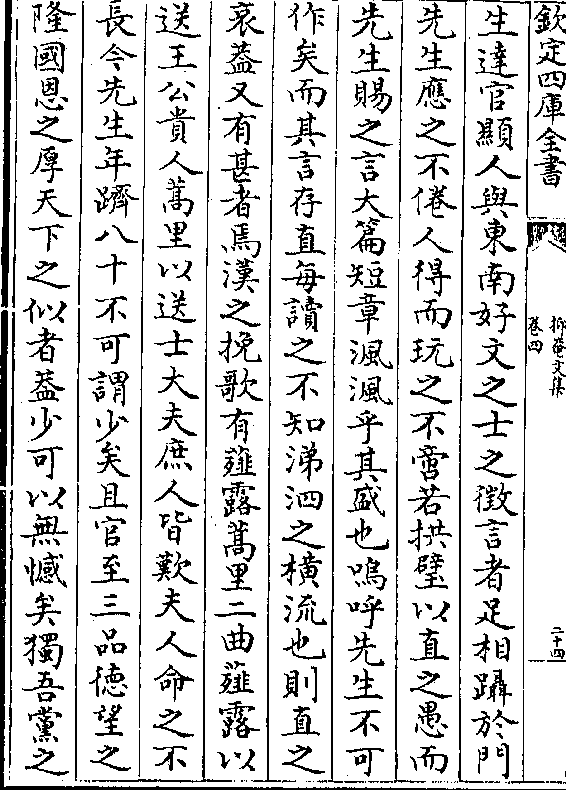 欽定四庫全書
抑菴文集
卷四
二十四
生達官顯人與東南好文之士之徵言者足相躡於門
先生應之不倦人得而玩之不啻若拱璧以直之愚而
先生賜之言大篇短章渢渢乎其盛也嗚呼先生不可
作矣而其言存直每讀之不知涕泗之橫流也則直之
哀葢又有甚者焉漢之挽歌有薤露蒿里二曲薤露以
送王公貴人蒿里以送士大夫庶人皆歎夫人命之不
長今先生年躋八十不可謂少矣且官至三品德望之
隆國恩之厚天下之似者葢少可以無憾矣獨吾黨之